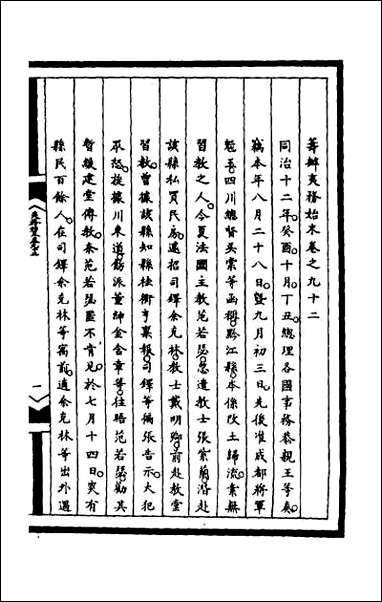 籌辦夷務始末卷之九十二
同治十二年癸酉十月丁丑總理各國事務恭親王等奏
竊本年八月二十八日暨九月初三日先後准成都將軍
魁玉四川總督吳棠等函稱黔江縣本係改土歸流素無
習教之人今夏法國主教范若瑟忽遣教士張紫蘭潛赴
該縣私買民房邀招司鐸余克林教士戴明卿前赴教堂
習教曾據該縣知縣桂衢亨稟報司鐸等偏張告示大犯
眾怒旋據川東道飭派董紳金含章等往晤范若瑟勸其
暫緩建堂傳教奈范若瑟匿不肯見於七月十四日突有
縣民百餘人在司鐸余克林等寓前適余克林等出外遇
一